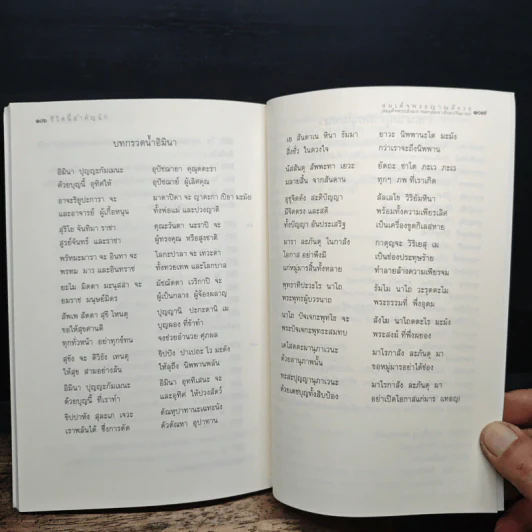 ๑๐๖ ชีวิตนี้สำคัญนัก
บทกรวดน้ำอิมินา
อิมินา ปุญญะกัมเมนะ อุปัชฌายา คุณุตตะรา
ด้วยบุญนี้ อุทิศให้ อุปัชฌาย์ ผู้เลิศคุณ
อาจะริยูปะการา จะ มาตาปิตา จะ ญาตะกา ปิยา จะมัง
และอาจารย์ ผู้เกื้อหนุน ทั้งพ่อแม่ และปวงญาติ
สุริโย จันทิมา ราชา คุณะวันตา นะราปิ จะ
สูรย์จันทร์ และราชา ผู้ทรงคุณ หรือสูงชาติ
พรัหมะมารา จะ อินทา จะ โลกะปาลา จะ เทวะตา
พรหม มาร และอินทราช ทั้งทวยเทพ และโลกบาล
ยะโม มิตตา มะนุสสา จะ มัชฌัตตา เวริกาปิ จะ
ยมราช มนุษย์มิตร ผู้เป็นกลาง ผู้จ้องผลาญ
สัพเพ สัตตา สุขี โหนตุ ปุญญานิ ปะกะตานิ เม
ขอให้สุขศานติ์ บุญผอง ที่ข้าทำ
ทุกทั่วหน้า อย่าทุกข์ทน จงช่วยอำนวย ศุภผล
สุขัง จะ ติวิธัง เทนตุ ขิปปัง ปาเปถะ โว มะตัง
ให้สุข สามอย่างล้น ให้ลุถึง นิพพานพลัน
อิมินา ปุญญะกัมเมนะ อิมินา อุททิเสนะ จะ
ด้วยบุญนี้ ที่เราทำ และอุทิศ ให้ปวงสัตว์
ขิปปาหัง สุละเภ เจวะ ตัณหุปาทานะเฉทะนัง
เราพลันได้ ซึ่งการตัด ตัวตัณหา อุปาทาน
สมเด็จพระญาณสังวร
๑๐๗
เย สันตาเน หินา ธัมมา ยาวะ นิพพานะโต มะมัง
สิ่งชั่ว ในดวงใจ กว่าเราจะถึงนิพพาน
นัสสันตุ สัพพะทา เยวะ ยัตถะ ชาโต ภะเว ภะเว
มลายสิ้น จากสันดาน ทุกๆ ภพ ที่เราเกิด
อุชุจิตตัง สะติปัญญา สัลเลโข วิริยัมหินา
มีจิตตรง และสติ พร้อมทั้งความเพียรเลิศ
ทั้งปัญญา อันประเสริฐ เป็นเครื่องขูดกิเลสหาย
มารา ละภันตุ โนกาสัง กาตุญจะ วิริเยสุ เม
โอกาส อย่าพึงมี เป็นช่องประทุษร้าย
แก่หมู่มารสิ้นทั้งหลาย ทำลายล้างความเพียรจม
พุทธาทิปะวะโร นาโถ ธัมโม นาโถ วะรุตตะโม
พระพุทธผู้บวรนาถ พระธรรมที่ พึ่งอุดม
นาโถ ปัจเจกะพุทโธ จะ สังโฆ นาโถตตะโร มะมัง
พระปัจเจกะพุทธะสมทบ พระสงฆ์ ที่พึ่งผยอง
เตโสตตะมานุภาเวนะ มาโรกาสัง ละภันตุ มา
ด้วยอานุภาพนั้น ขอหมู่มารอย่าได้ช่อง
ทะสะปุญญานุภาเวนะ มาโรกาสัง ละภันตุ มา
ด้วยเดชบุญทั้งสิบป้อง อย่าเปิดโอกาสแก่มาร เทอญ